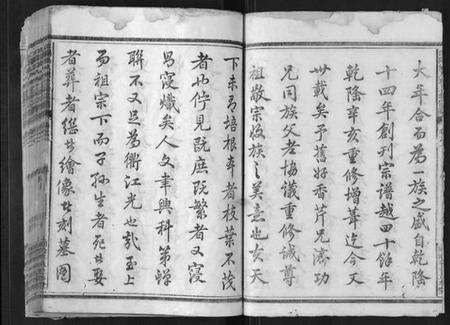 大年合而為一族之盛自乾隆
十四年創刊宗譜越四十餘年
乾隆辛亥重修增葺迄今又
卅載矣予舊好香岸兄濟功
兄同族父老協議重修誠尊
祖敬宗收族之美意也夫天
下未有培根本者枝葉不茂
者也佇見既庶既繁者又寖
昌寖熾矣人文聿興科第蟬
聯不又足為衢江光也哉至上
而祖宗下而子孫生者死娶
者葬者繪像刻墓圖